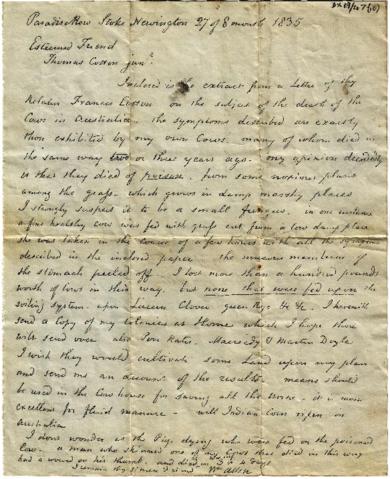 Paradise Row Stoke Newington 27 of 8 month 1835
Esteemed Friend
Thomas Cotton junr.
Inclosed is the extract from a Letter of thy
Relation Francis Cotton on the subject of the death of the
Cows in Australia. the symptoms described are exactly
those exhibited by my own Cows. many of whom died in
the same way two or three years ago. my opinion decidedly
is that they died of from some noxious plant
among the grass which grows in damp places
I strongly suspect it to be a small fungus. in one instance
a fine healthy cow was fed with grass cut from a low damp place
she was taken in the course of a few hours with all the symptoms
described in the inclosed paper. the membrane of
the stomach peeled off. I lost more than a hundred pounds
worth of cows in this way. but none that were fed upon the
soiling system upon Lucern Clover green Rye &c &c. I have
send a copy of my Colonies at Home which I hope thou
will send over also
I wish they would cultivate some Land upon my plan
and send me an account of the result. means should
be used in the Cow house for saving all the urine. it is most
excellent for fluid manure - will Indian Corn ripen in
Australia
I dont wonder at the Pigs dying who were fed on the poisoned
Cow. a man who skinned one of my Cows that died in this way
had a wound on his thumb and died in 3 or 4 days
I remain thy sincere friend Wm Allen